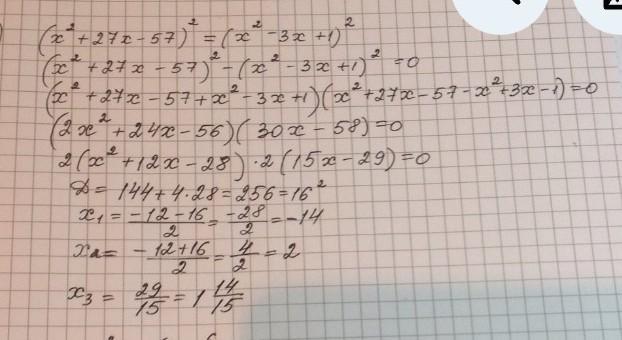 (x² + 27x - 57)² = (x² - 3x + 1)²
(x² + 27x - 57)² - (x² - 3x + 1)² = 0
(x² + 27x - 57 + x² - 3x + 1)(x² + 27x - 57 - x² + 3x - 1) = 0
(2x² + 24x - 56)(30x - 58) = 0
2(x² + 12x - 28) · 2(15x - 29) = 0
D = 144 + 4 · 28 = 256 = 16²
x₁ = (-12 - 16)/2 = -28/2 = -14
x₂ = (-12 + 16)/2 = 4/2 = 2
x₃ = 29/15 = 1 14/15